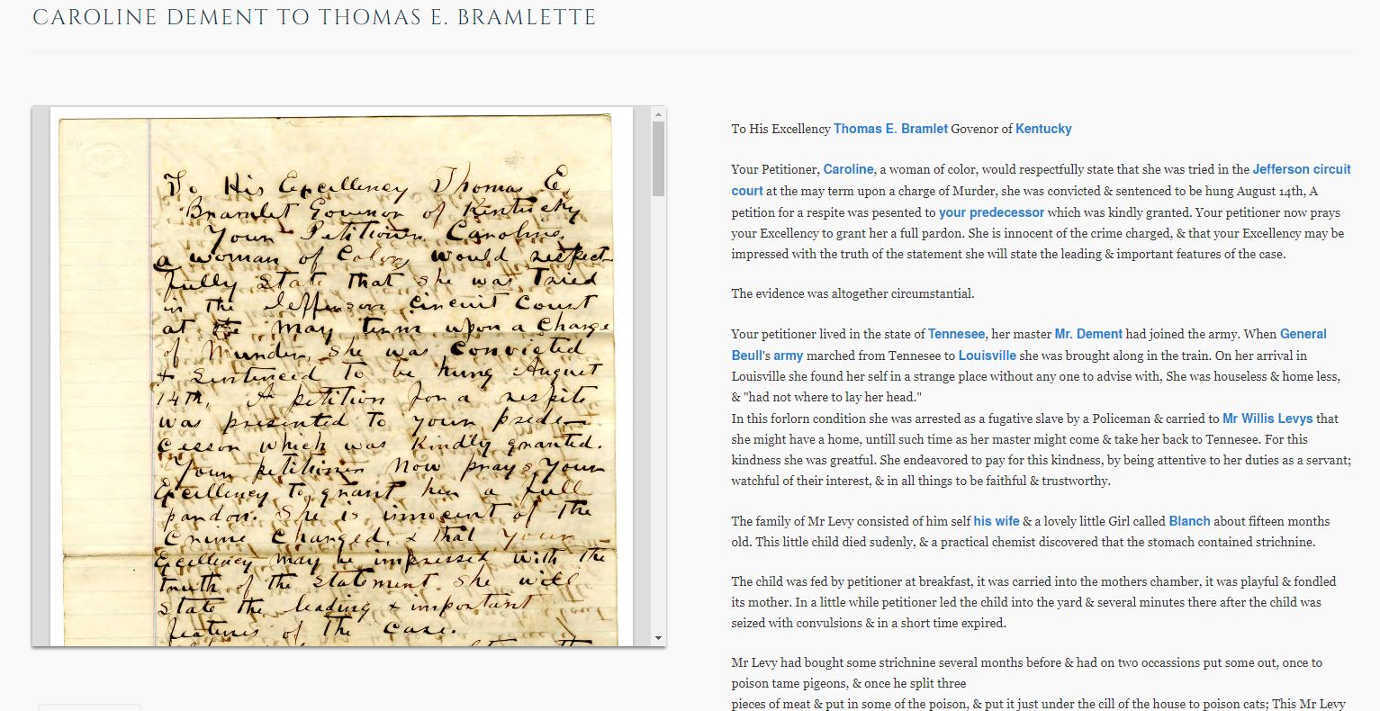 CAROLINE DEMENT TO THOMAS E. BRAMLETTE
To His Excellency Thomas E.
Bramlet Govenor of Kentucky
Your Petitioner, Caroline,
a woman of Color, would respect-
fully state that she was tried
in the Jefferson circuit Court
at the may term upon a Charge
of Murder, she was convicted
& sentenced to be hung August
14th, A petition for a respite
was presented to your prede-
cessor which was kindly granted.
Your petitioner now prays your
Excellency to grant her a full
pardon. She is innocent of the
crime charged, & that your
Excellency may be impressed with the
truth of the statement she will
state the leading & important
features of the case.
To His Excellency Thomas E. Bramlet Govenor of Kentucky
Your Petitioner, Caroline, a woman of color, would respectfully state that she was tried in the Jefferson circuit
court at the may term upon a charge of Murder, she was convicted & sentenced to be hung August 14th, A
petition for a respite was pesented to your predecessor which was kindly granted. Your petitioner now prays
your Excellency to grant her a full pardon. She is innocent of the crime charged, & that your Excellency may be
impressed with the truth of the statement she will state the leading & important features of the case.
The evidence was altogether circumstantial.
Your petitioner lived in the state of Tennesee, her master Mr. Dement had joined the army. When General
Beull's army marched from Tennesee to Louisville she was brought along in the train. On her arrival in
Louisville she found her self in a strange place without any one to advise with, She was houseless & home less,
& "had not where to lay her head."
In this forlorn condition she was arrested as a fugative slave by a Policeman & carried to Mr Willis Levys that
she might have a home, untill such time as her master might come & take her back to Tennesee. For this
kindness she was greatful. She endeavored to pay for this kindness, by being attentive to her duties as a servant;
watchful of their interest, & in all things to be faithful & trustworthy.
The family of Mr Levy consisted of him self his wife & a lovely little Girl called Blanch about fifteen months
old. This little child died sudenly, & a practical chemist discovered that the stomach contained strichnine.
The child was fed by petitioner at breakfast, it was carried into the mothers chamber, it was playful & fondled
its mother. In a little while petitioner led the child into the yard & several minutes there after the child was
seized with convulsions & in a short time expired.
Mr Levy had bought some strichnine several months before & had on two occassions put some out, once to
poison tame pigeons, & once he split three
pieces of meat & put in some of the poison, & put it just under the cill of the house to poison cats; This Mr Levy